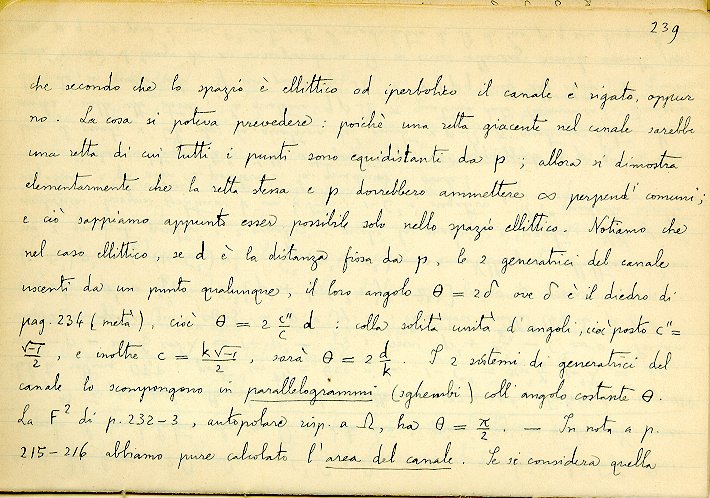 239
che secondo che lo spazio è ellittico od iperbolico il canale è rigato, oppur
no. La cosa si poteva prevedere: poichè una retta giacente nel canale sarebbe
una retta di cui tutti i punti sono equidistanti da p; allora si dimostra
elementarmente che la retta stessa e p dovrebbero ammettere ∞ perpend.ⁱ comuni;
e ciò sappiamo appunto esser possibile solo nello spazio ellittico. Notiamo che
nel caso ellittico, se d è la distanza fissa da p, le 2 generatrici del canale
uscenti da un punto qualunque, il loro angolo θ = 2δ ove δ è il diedro di
pag. 234 (metà), cioè θ = 2 c''/c d : colla solita unità d'angoli, cioè posto c'' =
√-1/2, e inoltre c = k√-1/2, sarà θ = 2 d/k. I 2 sistemi di generatrici del
canale lo scompongono in parallelogrammi (sghembi) coll'angolo costante θ.
La F² di p. 232-3, autopolare risp. a Ω, ha θ = π/2. — In nota a p.
215-216 abbiamo pure calcolato l'area del canale. Se si considera quella